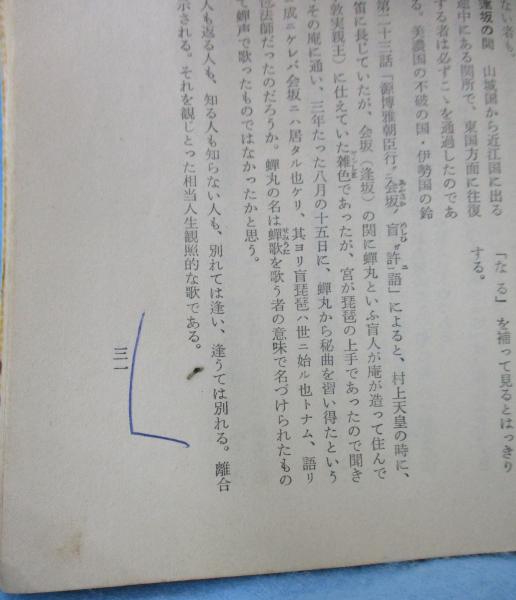 ない者も、
逢坂の関　山城国から近江国に出る
途中にある関所で、東国方面に往復
する者は必ずこゝを通過したのであ
る。美濃国の不破の国・伊勢国の鈴
「なる」を補って見るとはっきり
する。
第二十三話「源博雅朝臣行ニ会坂ノ盲ガ許ニ語」によると、村上天皇の時に、
笛に長じていたが、会坂（逢坂）の関に蟬丸といふ盲人が庵が造って住んで
敦実親王）に仕えていた雑色であったが、宮が琵琶の上手であったので聞き
その庵に通い、三年たった八月の十五日に、蟬丸から秘曲を習い得たという
成ニケレバ会坂ニハ居タル也ケリ、其ヨリ盲琵琶ハ世ニ始ル也トナム、語リ
法師だったのだろうか。蟬丸の名は蟬歌を歌う者の意味で名づけられたもの
て蟬声で歌ったものではなかったかと思う。
人も返る人も、知る人も知らない人も、別れては逢い、逢うては別れる。離合
示される。それを観じとった相当人生観照的な歌である。
三一